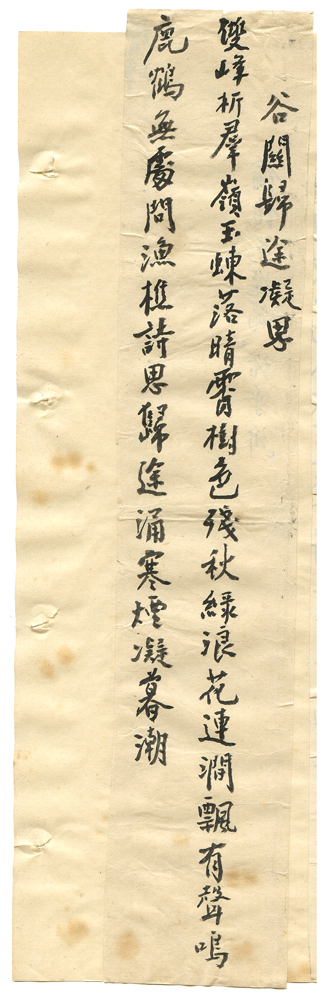 谷關歸途凝思
雙峰析羣嶺玉蝀落晴霄樹色殘秋綠浪花連澗飄有聲鳴
鹿鶴無處問漁樵詩思歸途涌寒煙凝暮潮